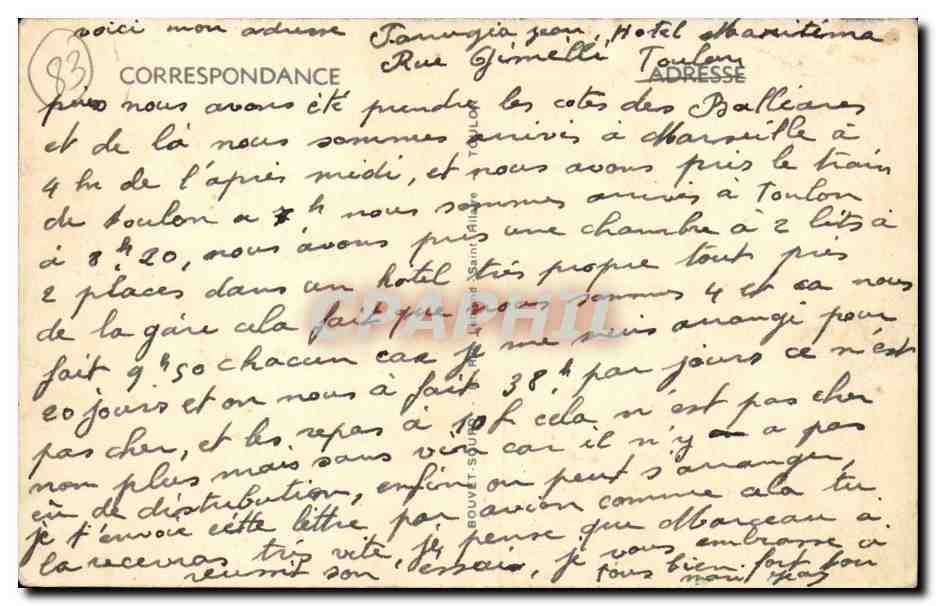 voici mon adresse jean, Hotel Maritima
Rue Gimelli Toulon
83
CORRESPONDANCE ADRESSE
puis nous avons été prendre les cotes des Balléares
et de là nous sommes arrivés à Marseille à
4 hr de l'après midi, et nous avons pris le train
de toulon a 7 h nous sommes arrivés à Toulon
à 8h.20, nous avons pris une chambre à 2 lits à
2 places dans un hotel très propre tout près
de la gare cela fait que nous sommes 4 et ca nous
fait 9 h 50 chacun car je me suis arrangé pour
20 jours et on nous à fait 38 h. par jours ce n'est
pas cher, et les repas à 10f cela n'est pas cher
non plus mais sans vin car il n'y a pas
eù de distribution, enfin on peut s'arranger,
je t'envoie cette lettre par avion comme cela tu
la recevras très vite, je pense que Marceau a
réussit son essai, je vous embrasse à
tous bien fort ton
BOUVET-SOURD Saint Hilaire TOULON
CPAPHIL